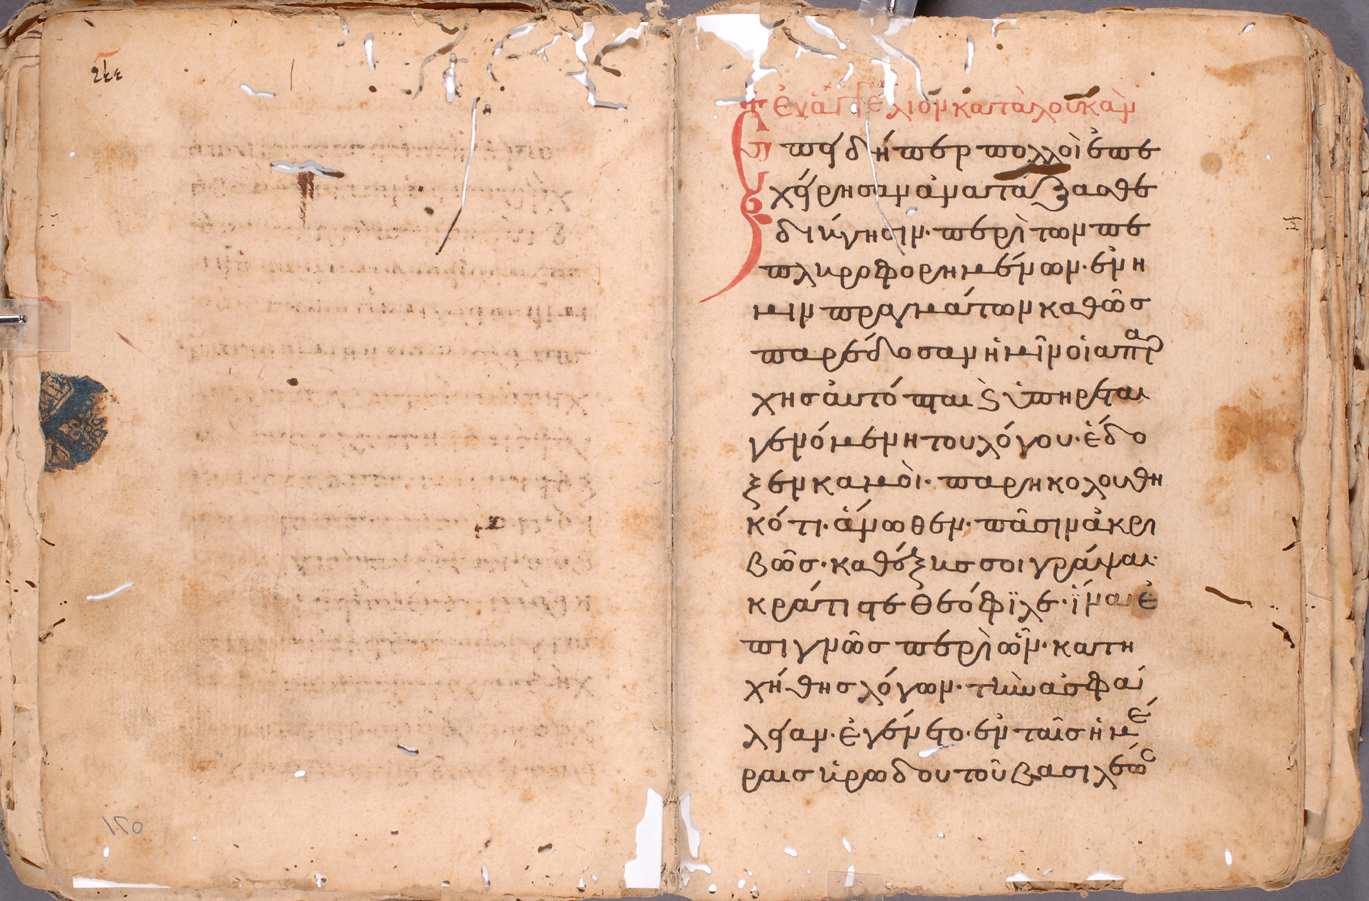 + ἐυἀγγέλιον κατα λουκὰν
Επηδήπερ πολλοὶ ἐπε
χήρησαν ἀναταξασθε
διήγησιν· περὶ των πε
πληροφορημένων· ἐν η
μιν πραγμάτων καθῶς
παρέδοσαν ἡμῖν οἱ απαρ
χης ἀυτόπται ϗ ὑπηρέται
γενόμενη του λόγου· ἐδο
ξεν καμοὶ· παρηκολουθη
κότι· ἄνωθεν· πᾶσιν ἀκρι
βῶς· καθόξης σοι γράψαι·
κράτιστε Θεόφϊλε· ἵνα ἐ
πιγνῶς περὶ ὧν· κατη
χήθης λόγων· την ασφαί
λείαν· ἐγένετο· ἐν ταῖς ἡμέ
ραις ἡρωδου τοῦ βασιλέως